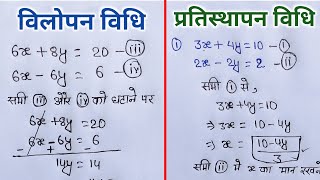 विलोपन विधि
6x + 8y = 20 - iii
6x - 6y = 6 - iv
समी iii और iv को घटाने पर
6x + 8y = 20
6x - 6y = 6
- + -
14y = 14
प्रतिस्थापन विधि
① 3x + 4y = 10 - i
2x - 2y = 2 - ii
समी i से,
3x + 4y = 10
⇒ 3x = 10 - 4y
⇒ x = 10 - 4y
3
समी ii में x का मान रखने